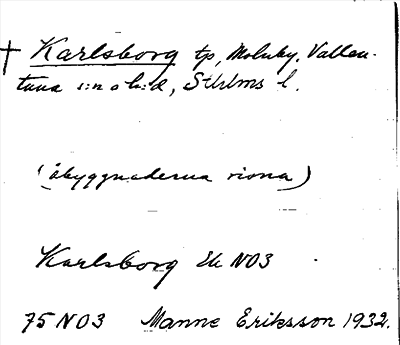 † Karlsborg tp, Molnby, Vallen-
tuna s:n o h:d, Sthlms l.
(åbyggnaderna rivna)
Karlsborg Ek NO3
75 NO3 Manne Eriksson 1932.